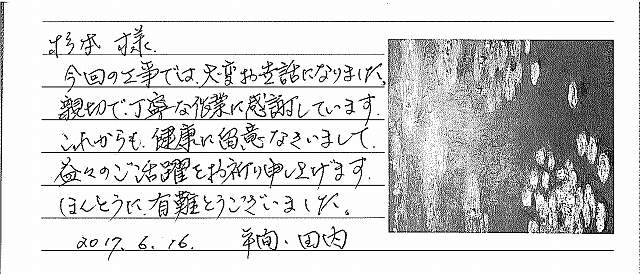 杉本 様.
今回の工事では、大変お世話になりました。
親切で丁寧な作業に感謝しています.
これからも、健康に留意なさいまして、
益々のご活躍をお祈り申し上げます.
ほんとうに、有難とうございました。
2017. 6. 16. 年間・田内